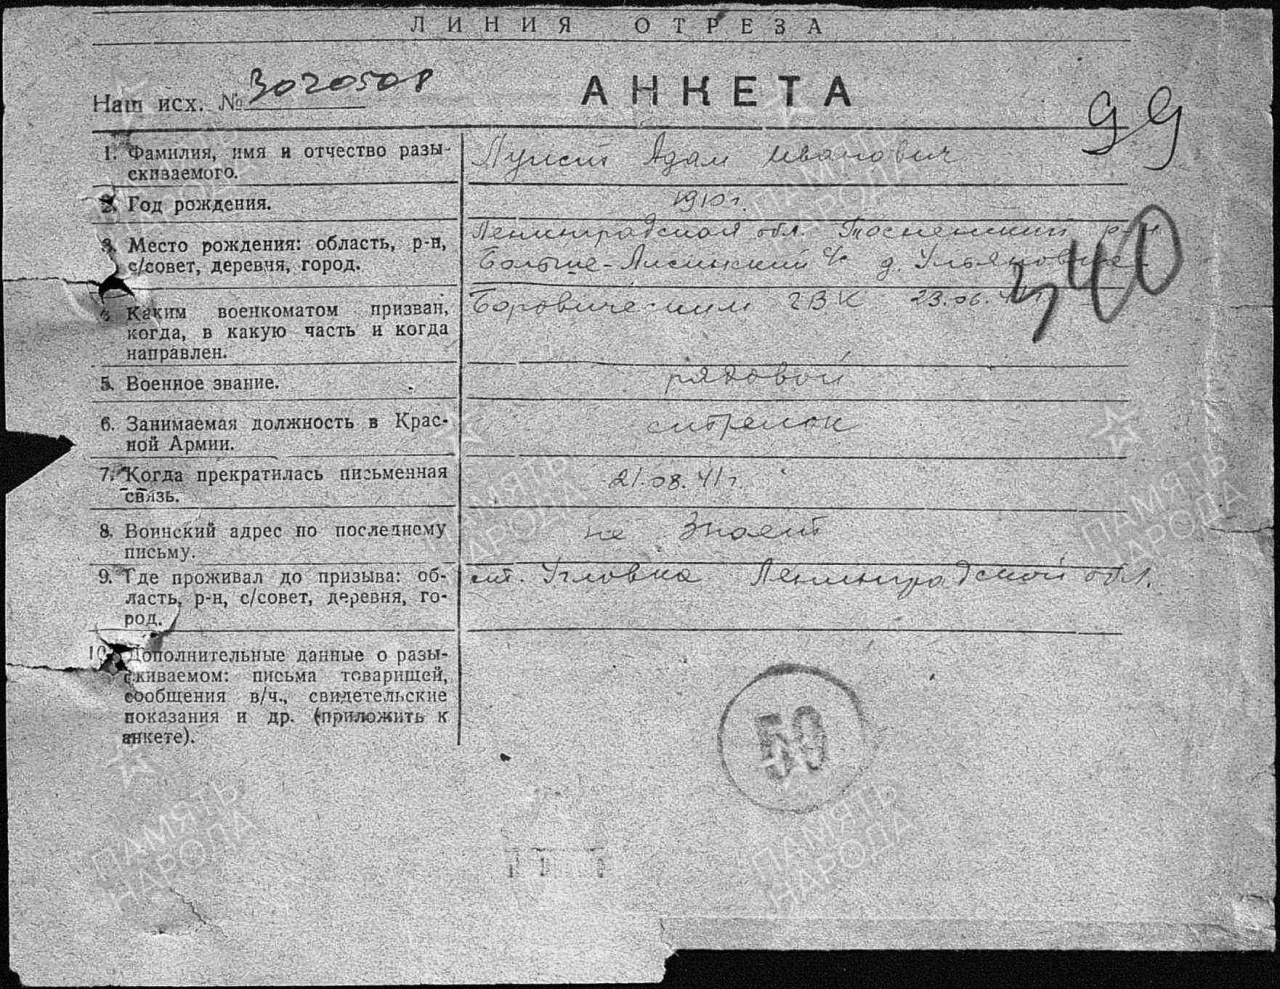 ЛИНИЯ ОТРЕЗА
Наш исх. № 3020508
АНКЕТА
99
1. Фамилия, имя и отчество разы-
скиваемого.
Адам Иванович
2. Год рождения.
1910 г.
3. Место рождения: область, р-н,
с/совет, деревня, город.
Ленинградская обл. Тосненский р-н
Больше-Лисинский с/с д. Ульяновка
4. Каким военкоматом призван,
когда, в какую часть и когда
направлен.
Боровическим ГВК 23.06.41
340
5. Военное звание.
рядовой
6. Занимаемая должность в Крас-
ной Армии.
стрелок
7. Когда прекратилась письменная
связь.
21.08.41 г.
8. Воинский адрес по последнему
письму.
не знает
9. Где проживал до призыва: об-
ласть, р-н, с/совет, деревня, го-
род.
ст. Угловка Ленинградской обл.
10. Дополнительные данные о разы-
скиваемом: письма товарищей,
сообщения в/ч., свидетельские
показания и др. (приложить к
анкете).
50
ПАМЯТЬ
НАРОДА
ПАМЯТЬ
НАРОДА
ПАМЯТЬ
НАРОДА
ПАМЯТЬ
НАРОДА
ПАМЯТЬ
НАРОДА
ПАМЯТЬ
НАРОДА